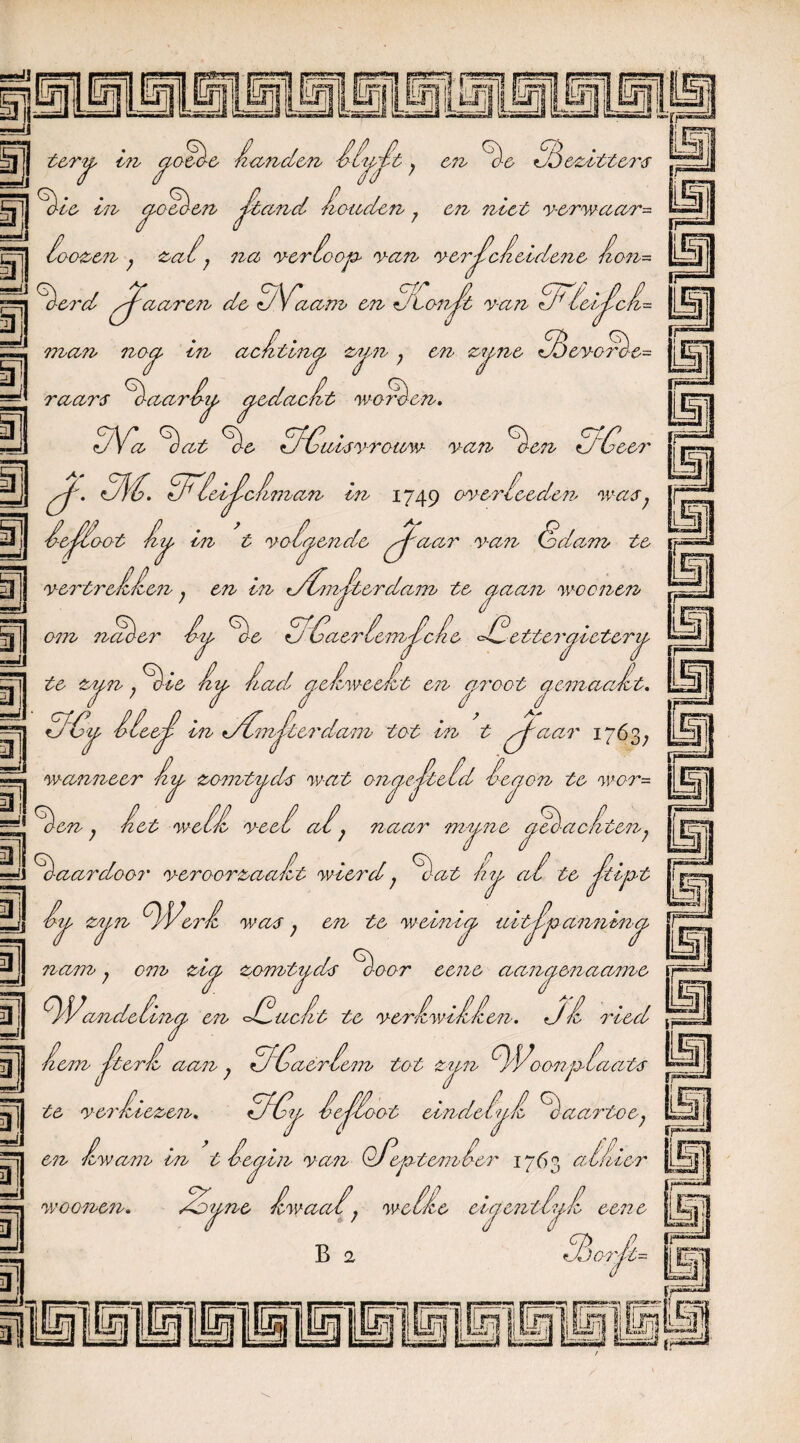 tery in goede handen blyft, en de Bezitters
die in goeden ſtand houden, en niet verwaar=
loozen, zal, na verloop van verſcheidene hon=
derd Jaaren de Naam en Konſt van Fleiſch=
man nog in achting zyn, en zyne Bevorde=
raars daarby gedacht worden.
Na dat de Huisvrouw van den Heer
J. M. Fleiſchman in 1749 overleeden was,
beſloot hy in 't volgende Jaar van Edam te
vertrekken, en in Amſterdam te gaan woonen
om nader by de Haerlemſche Lettergietery
te zyn, die hy had gekweekt en groot gemaakt.
Hy bleef in Amſterdam tot in 't Jaar 1763,
wanneer hy zomtyds wat ongeſteld begon te wor=
den, het welk veel al, naar myne gedachten,
daardoor veroorzaakt wierd, dat hy al te ſtipt
by zyn Werk was, en te weinig uitſpanning
nam, om zig zomtyds door eene aangenaame
Wandeling en Lucht te verkwikken. Ik ried
hem ſterk aan, Haerlem tot zyn Woonplaats
te verkiezen. Hy beſloot eindelyk daartoe,
en kwam in 't begin van September 1763 alhier
woonen. Zyne kwaal, welke eigentlyk eene
B 2 Borſt=